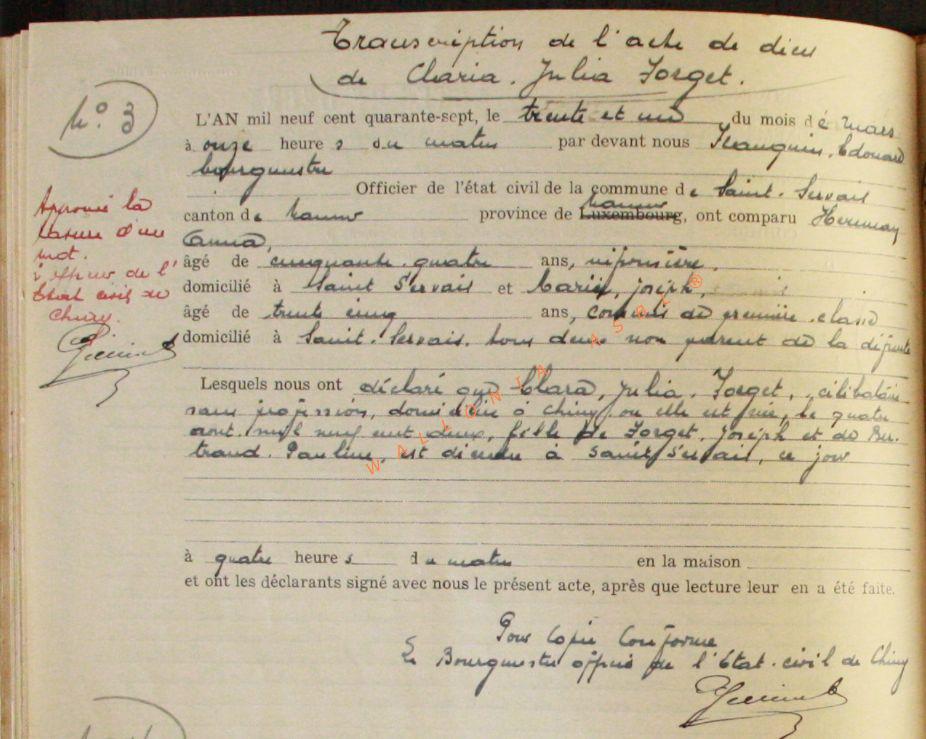 Transcription de l'acte de décès
de Claria. Julia Forget.
N° 3
L'AN mil neuf cent quarante-sept, le trente et un du mois dé mars
à onze heure s du matin par devant nous Edouard
bourgmestre
Officier de l'état civil de la commune de Saint. Servais
namur
canton de namur province de Luxembourg, ont comparu
Anna,
âgé de cinquante quatre ans, infirmière,
domicilié à Saint Servais et Marin, Joseph,
âgé de trente cinq ans, commis de première classe
domicilié à Saint. Servais. tous deux non parent de la défunte
Lesquels nous ont déclaré que Clara, Julia. Forget, célibataire
sans profession, domiciliée à Chiny, où elle est née, le quatre
août mil neuf cent deux, fille de Forget, Joseph et de Ber-
trand. Pauline, est décédée à Saint Servais, ce jour
à quatre heure s du matin en la maison
et ont les déclarants signé avec nous le présent acte, après que lecture leur en a été faite.
Pour Copie Conforme
Le Bourgmestre officier de l'Etat. civil de Chiny
Approuvé la
rature d'un
mot.
l'officier de l'
Etat civil de
Chiny.
WALLONIA ASBL®